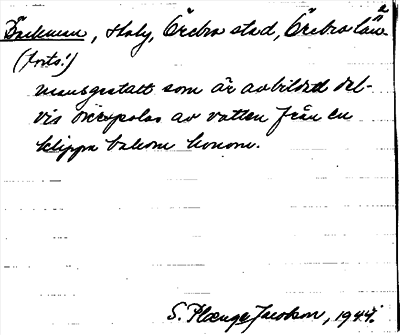 2
Bäckman, Holy, Örebro stad, Örebro län
(forts.)
mansgestalt som är avbildad del-
vis överspolas av vatten från en
klippa bakom honom.
S. Plænge Jacobson, 1947.